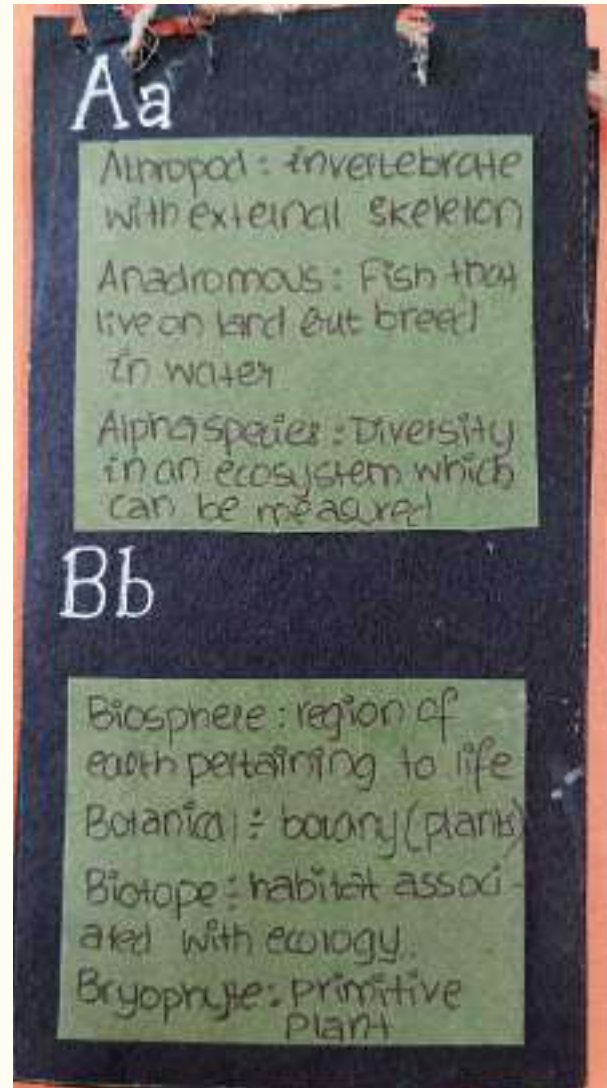 Aa
Athropod : invertebrate
with external skeleton
Anadromous : Fish that
live on land but breed
in water
Alpha species : Diversity
in an ecosystem which
can be measured
Bb
Biosphere : region of
earth pertaining to life
Botanical : botany (plants)
Biotope : habitat associ-
ated with ecology.
Bryophyte : primitive
plant